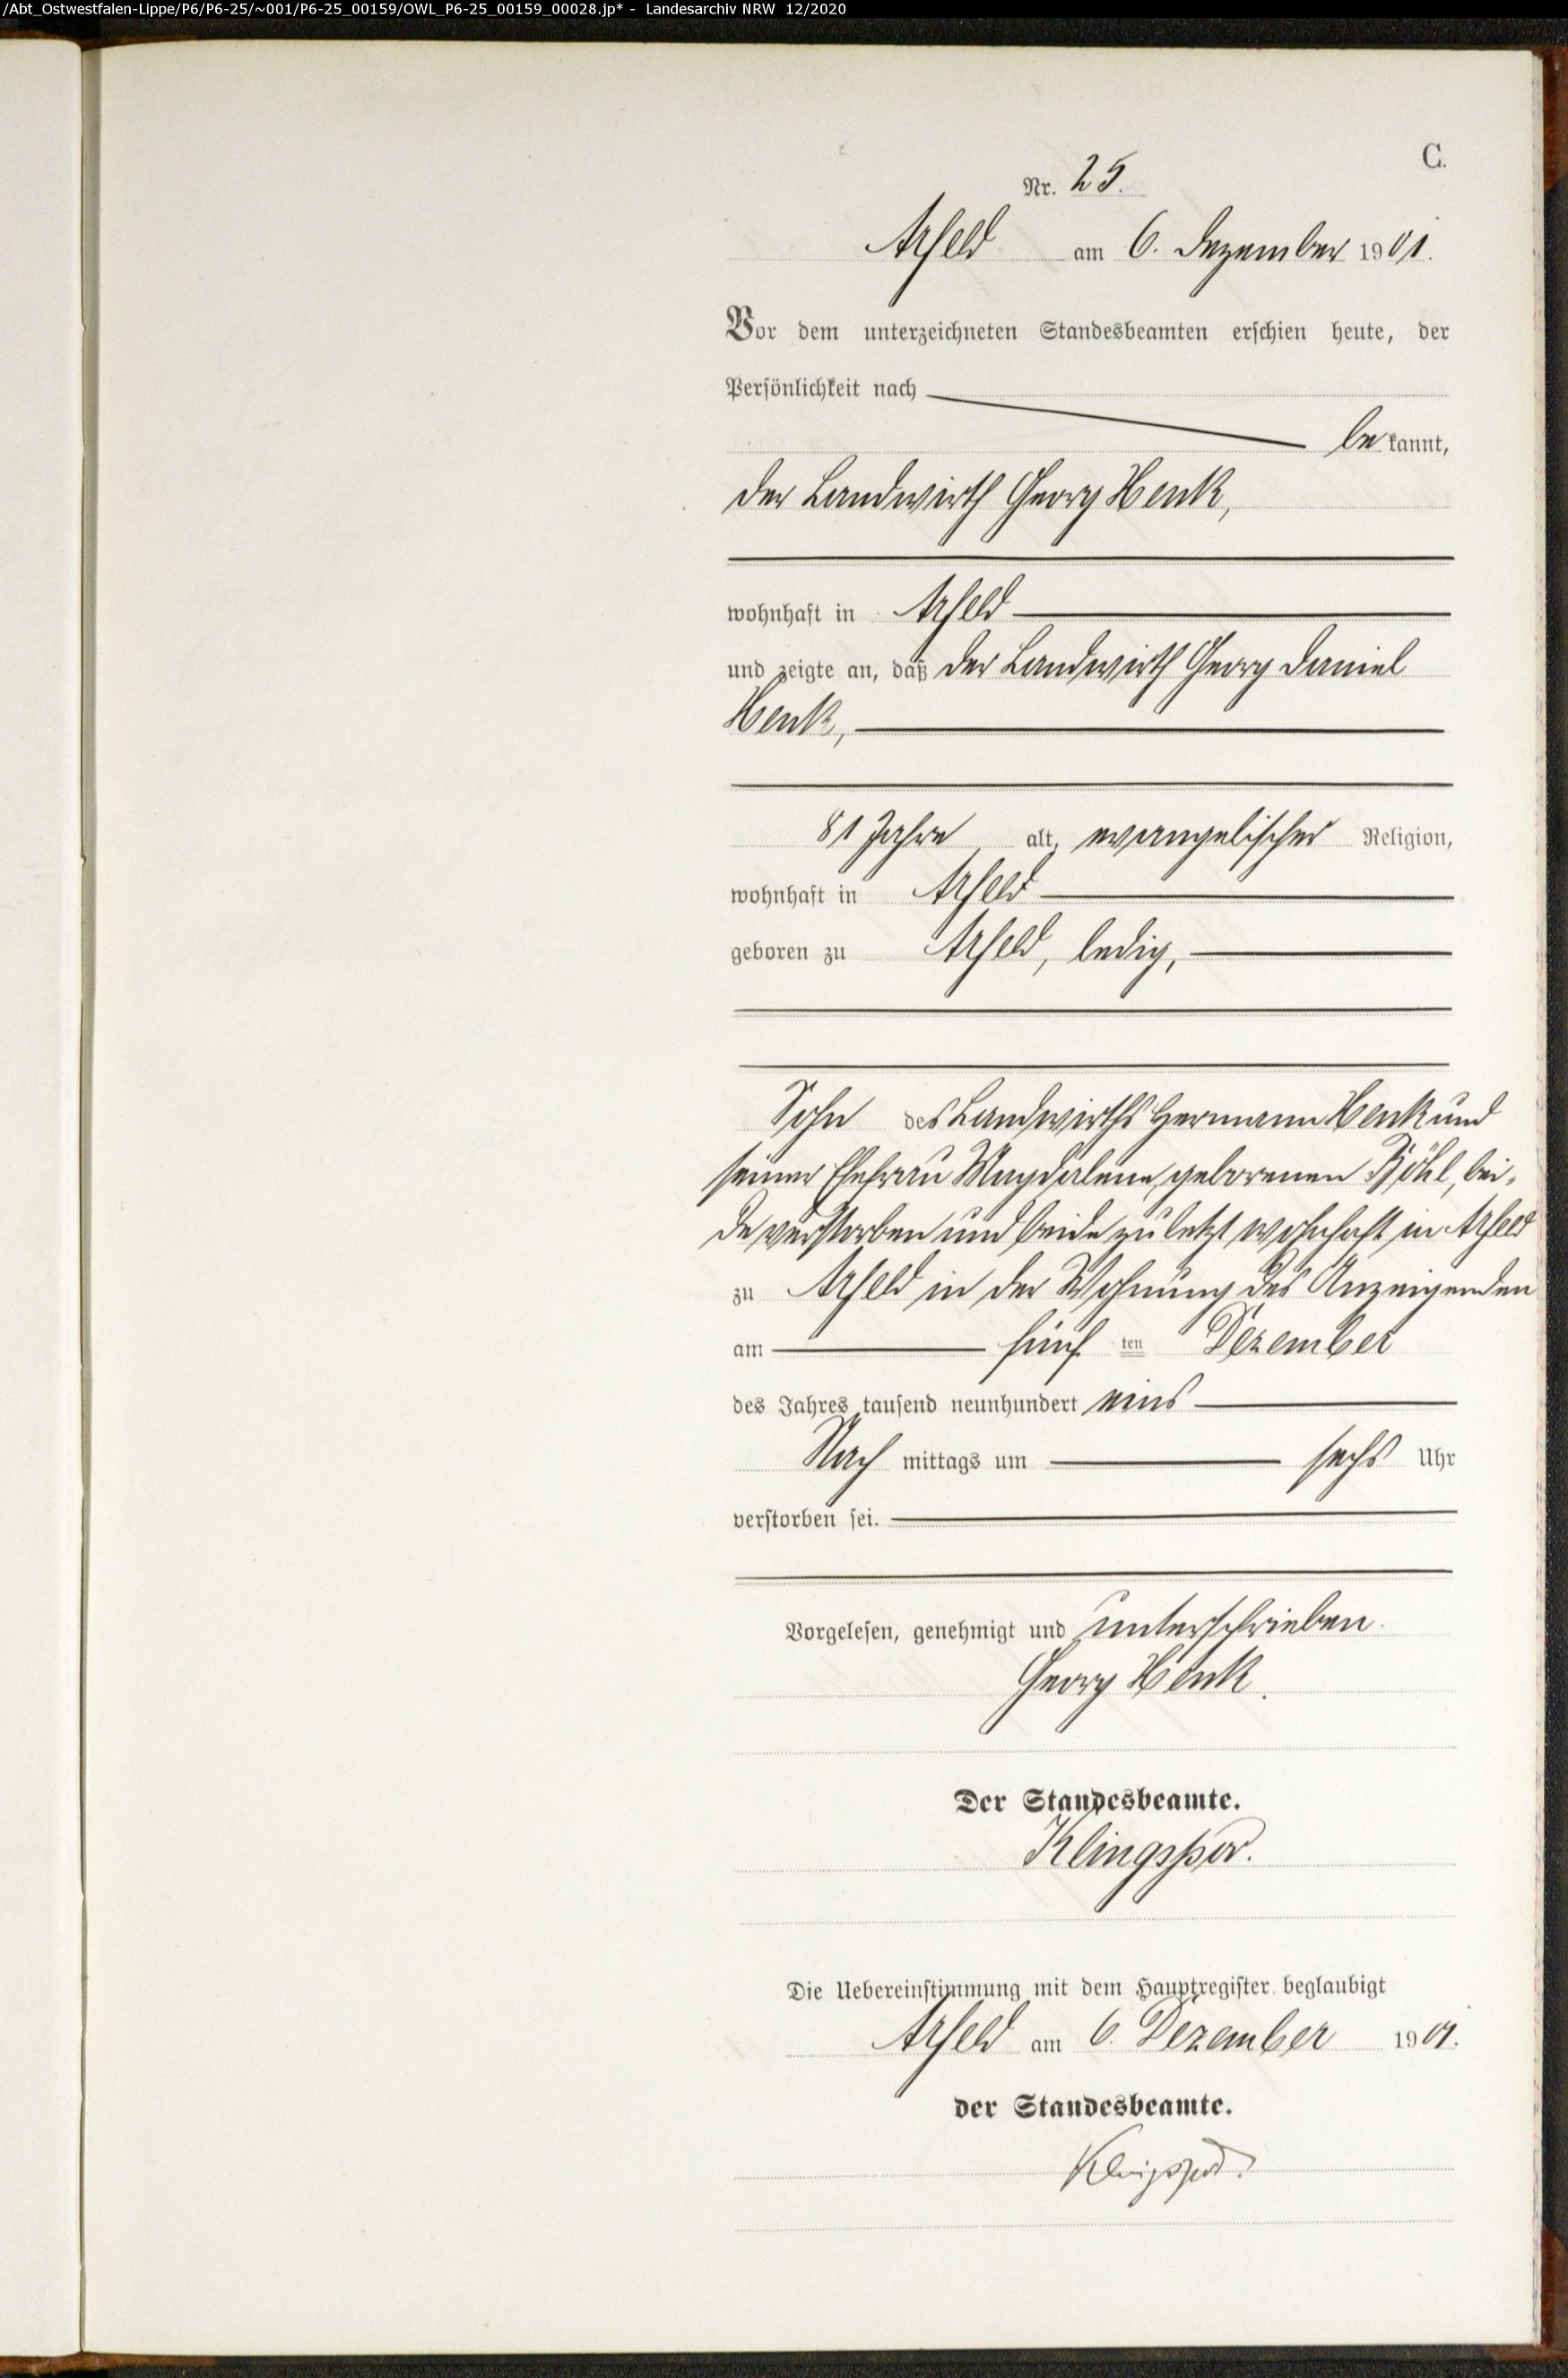 /Abt_Ostwestfalen-Lippe/P6/P6-25/~001/P6-25_00159/OWL_P6-25_00159_00028.jp* - Landesarchiv NRW 12/2020
C.
Nr. 25.
Arfeld am 6. Dezember 1901.
Vor dem unterzeichneten Standesbeamten erschien heute, der
Persönlichkeit nach
bekannt,
der Landwirth Georg Henk,
wohnhaft in Arfeld
und zeigte an, daß der Landwirth Georg Daniel
Henk,
81 Jahre alt, evangelischer Religion,
wohnhaft in Arfeld
geboren zu Arfeld, ledig,
Sohn des Landwirths Hermann Henk und
seiner Ehefrau Magdalene, geborenen Böhl, bei-
de verstorben und beide zuletzt wohnhaft in Arfeld
zu Arfeld in der Wohnung des Anzeigenden
am fünften Dezember
des Jahres tausend neunhundert eins
Nachmittags um sechs Uhr
verstorben sei.
Vorgelesen, genehmigt und unterschrieben.
Georg Henk.
Der Standesbeamte.
Klingspor.
Die Uebereinstimmung mit dem Hauptregister beglaubigt
Arfeld am 6. Dezember 1901.
der Standesbeamte.
Klingspor.